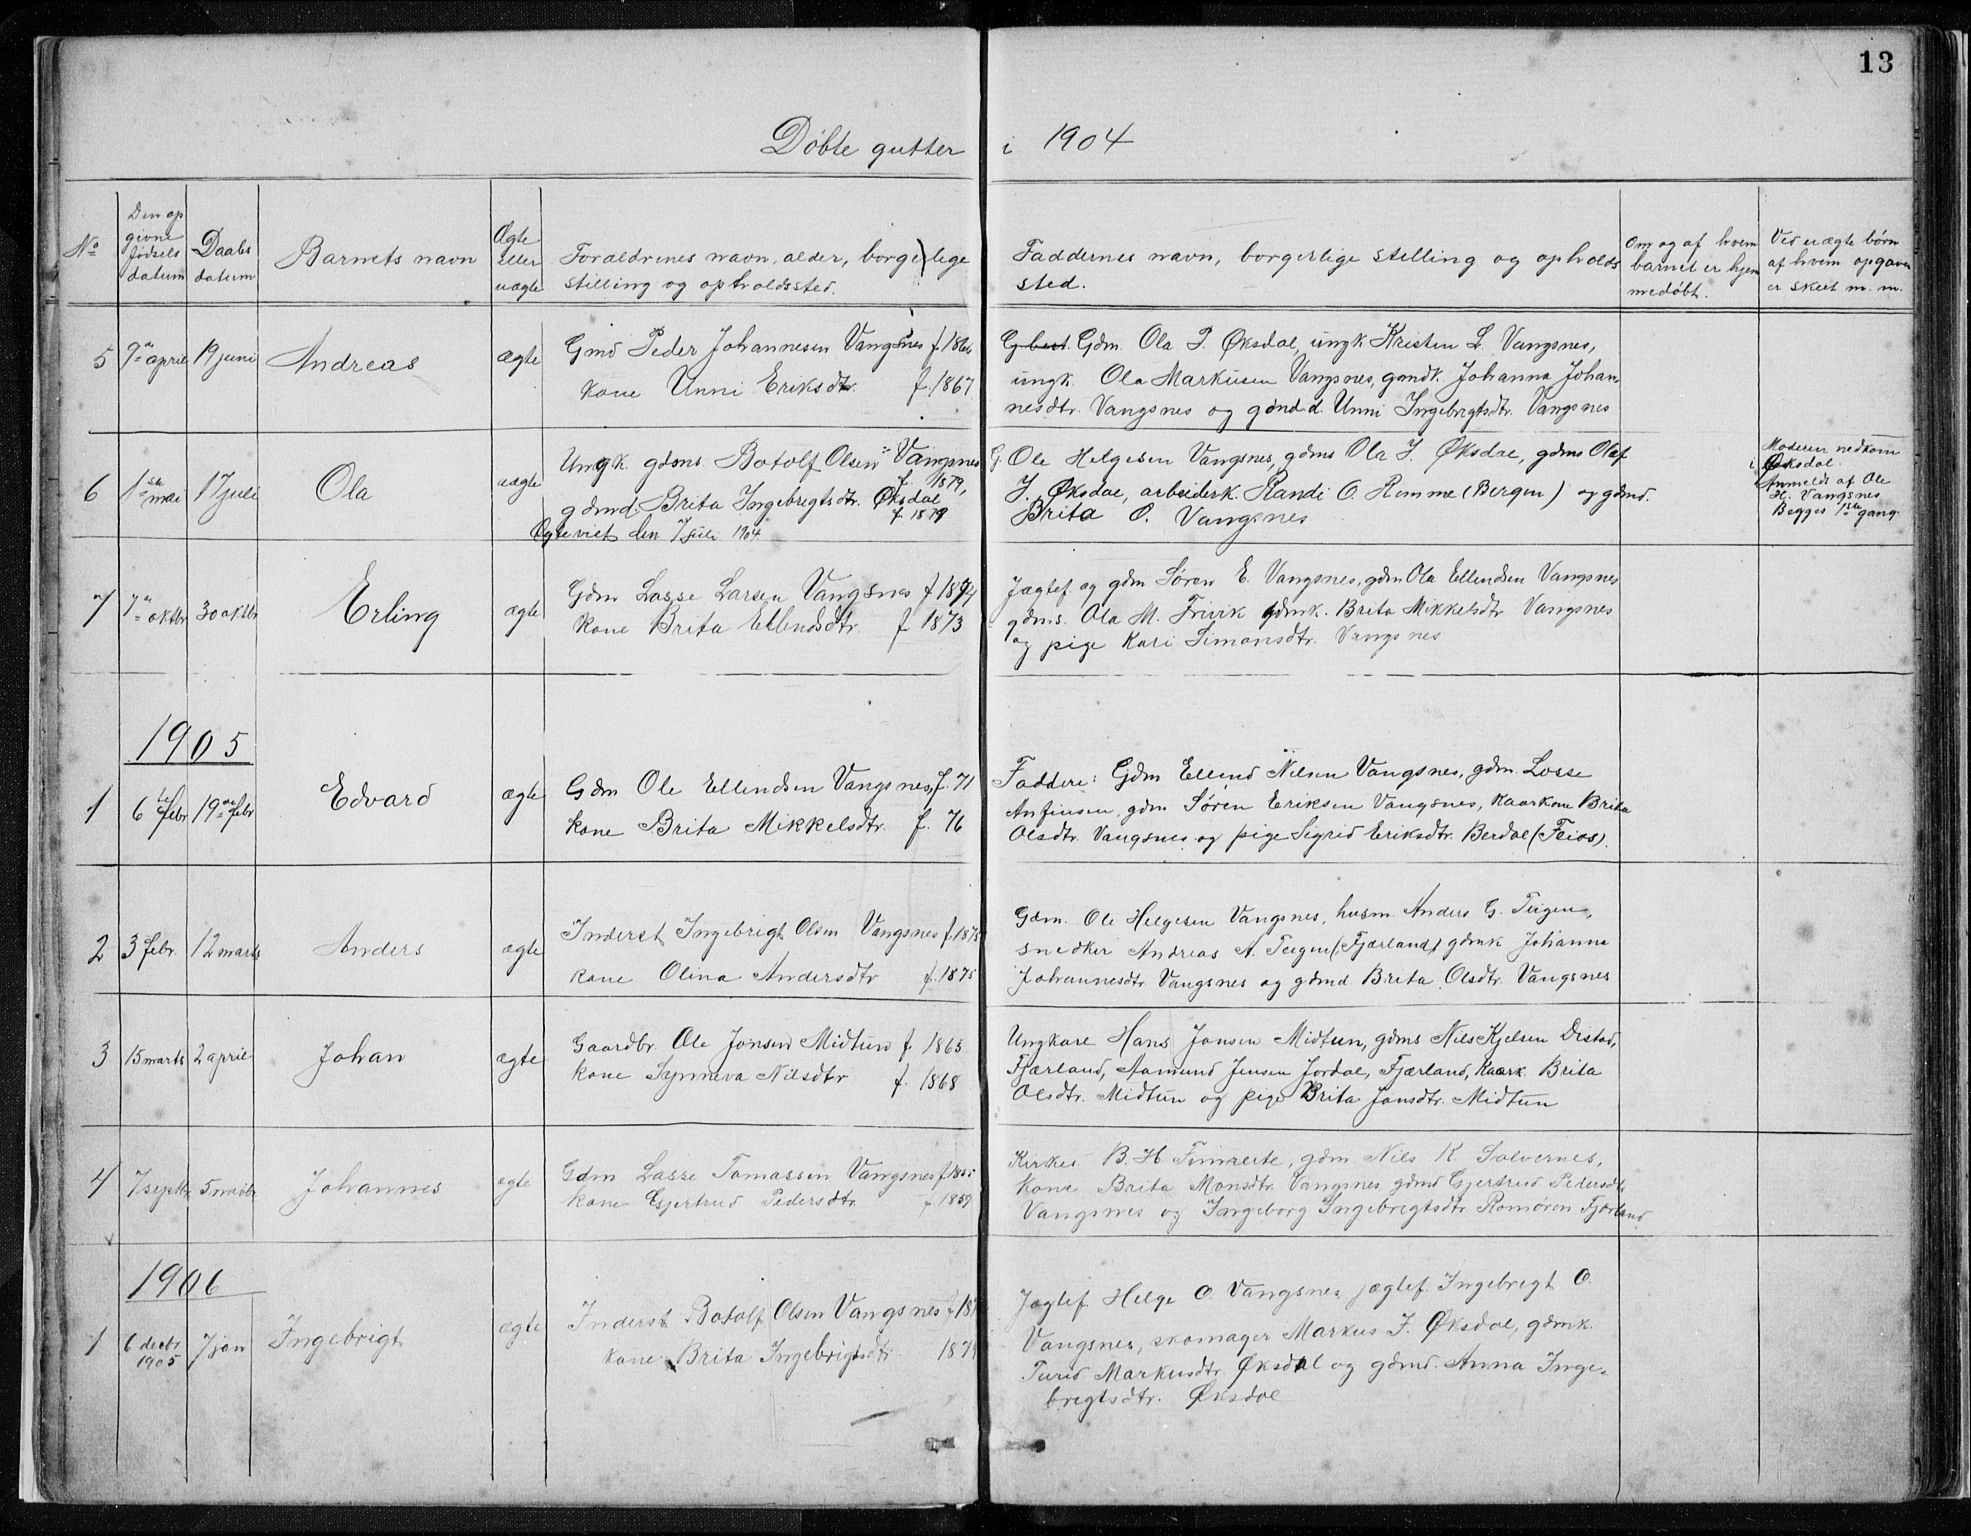 13
Døbte gutter i 1904
No
Den op
givne
fødsels
datum
Daabs
datum
Barnets navn
Ægte
eller
uægte
Foraldrenes navn, alder, borgerlige
stilling og opholdssted.
Faddernes navn, borgerlige stilling og opholds
sted.
Om og af hvem
barnet er hjem
medøbt.
Ved uægte børn
af hvem opgaven
er skeet m. m.
5 9de april 19 juni Andreas ægte
Gmd Peder Johannesen Vangsnes f. 1866
kone Unni Eriksdtr. f. 1867
Gdm. Ola P. Øksdal, ungk Kristen L. Vangsnes,
ungk. Ola Markusen Vangsnes, gmdk. Johanna Johan-
nesdtr. Vangsnes og gdmd. Unni Ingebrigtsdtr. Vangsnes
6 1ste mai 17 juli Ola uægte
Ungk. gdms. Botolf Olsen Vangsnes
f. 1879,
gdmd. Brita Ingebrigtsdtr. Øksdal
f. 1879
Ægteviet den 7 juli 1904.
G. Ole Helgesen Vangsnes, gdms Ola I. Øksdal, gdms Olaf
I. Øksdal, arbeiderk. Randi O. Romme (Bergen) og gdmd.
Brita O. Vangsnes
Moderen nedkom
i Øksdal.
Anmeldt af Ole
H. Vangsnes
Begges 1ste gang.
7 7de oktbr 30 oktbr Erling ægte
Gdm Lasse Larsen Vangsnes f 1874
kone Brita Ellendsdtr. f 1873
Jægtef og gdm Søren E. Vangsnes, gdm Ola Ellendsen Vangsnes
gdms. Ola M. Frivik gdmk. Brita Mikkelsdtr Vangsnes
og pige Kari Simonsdtr. Vangsnes
1905
1 6te febr 19de febr Edvard ægte
Gdm Ole Ellendsen Vangsnes, f. 71
kone Brita Mikkelsdtr. f. 76
Faddere: Gdm Ellend Nilsen Vangsnes, gdm. Lasse
Anfinsen, gdm Søren Eriksen Vangsnes, kaarkone Brita
Olsdtr. Vangsnes og pige Sigrid Eriksdtr. Berdal (Feios).
2 3 febr. 12 marts Anders ægte
Inderst Ingebrigt Olsen Vangsnes f. 1875
kone Olina Andersdtr f. 1875
Gdm. Ole Helgesen Vangsnes, husm. Anders G. Teigen,
snedker Andreas A. Teigen (Fjærland) gdmk Johanna
Johannesdtr Vangsnes og gdmd Brita Olsdtr. Vangsnes
3 15 marts 2 april Johan ægte
Gaardbr. Ole Jonsen Midtun f. 1865
kone Synneva Nilsdtr f. 1868
Ungkare Hans Jonsen Midtun, gdms Nils Kjelsen Distad,
Fjærland, Aamund Jensen Jordal, Fjærland, Kaark. Brita
Olsdtr. Midtun og pige Brita Jonsdtr. Midtun
4 7 septbr 5 novbr Johannes ægte
Gdm Lasse Tomassen Vangsnes f 1855
kone Gjertrud Pedersdtr. f 1859
Kirkes B. H. Timreite, gdm. Nils K. Solvernes,
kone Brita Monsdtr. Vangsnes gdmd Gjertrud Pedersdtr
Vangsnes og Ingeborg Ingebrigtsdtr Romøren Fjærland
1906
1 6 decbr 1905 7 jan Ingebrigt ægte
Inderst Botolf Olsen Vangsnes f 18
kone Brita Ingebrigtsdtr. 1879
Jægtef Helge O. Vangsnes jægtef. Ingebrigt O.
Vangsnes, skomager Markus I. Øksdal, gdmk.
Turid Markusdtr Øksdal og gdmd. Anna Inge-
brigtsdtr. Øksdal